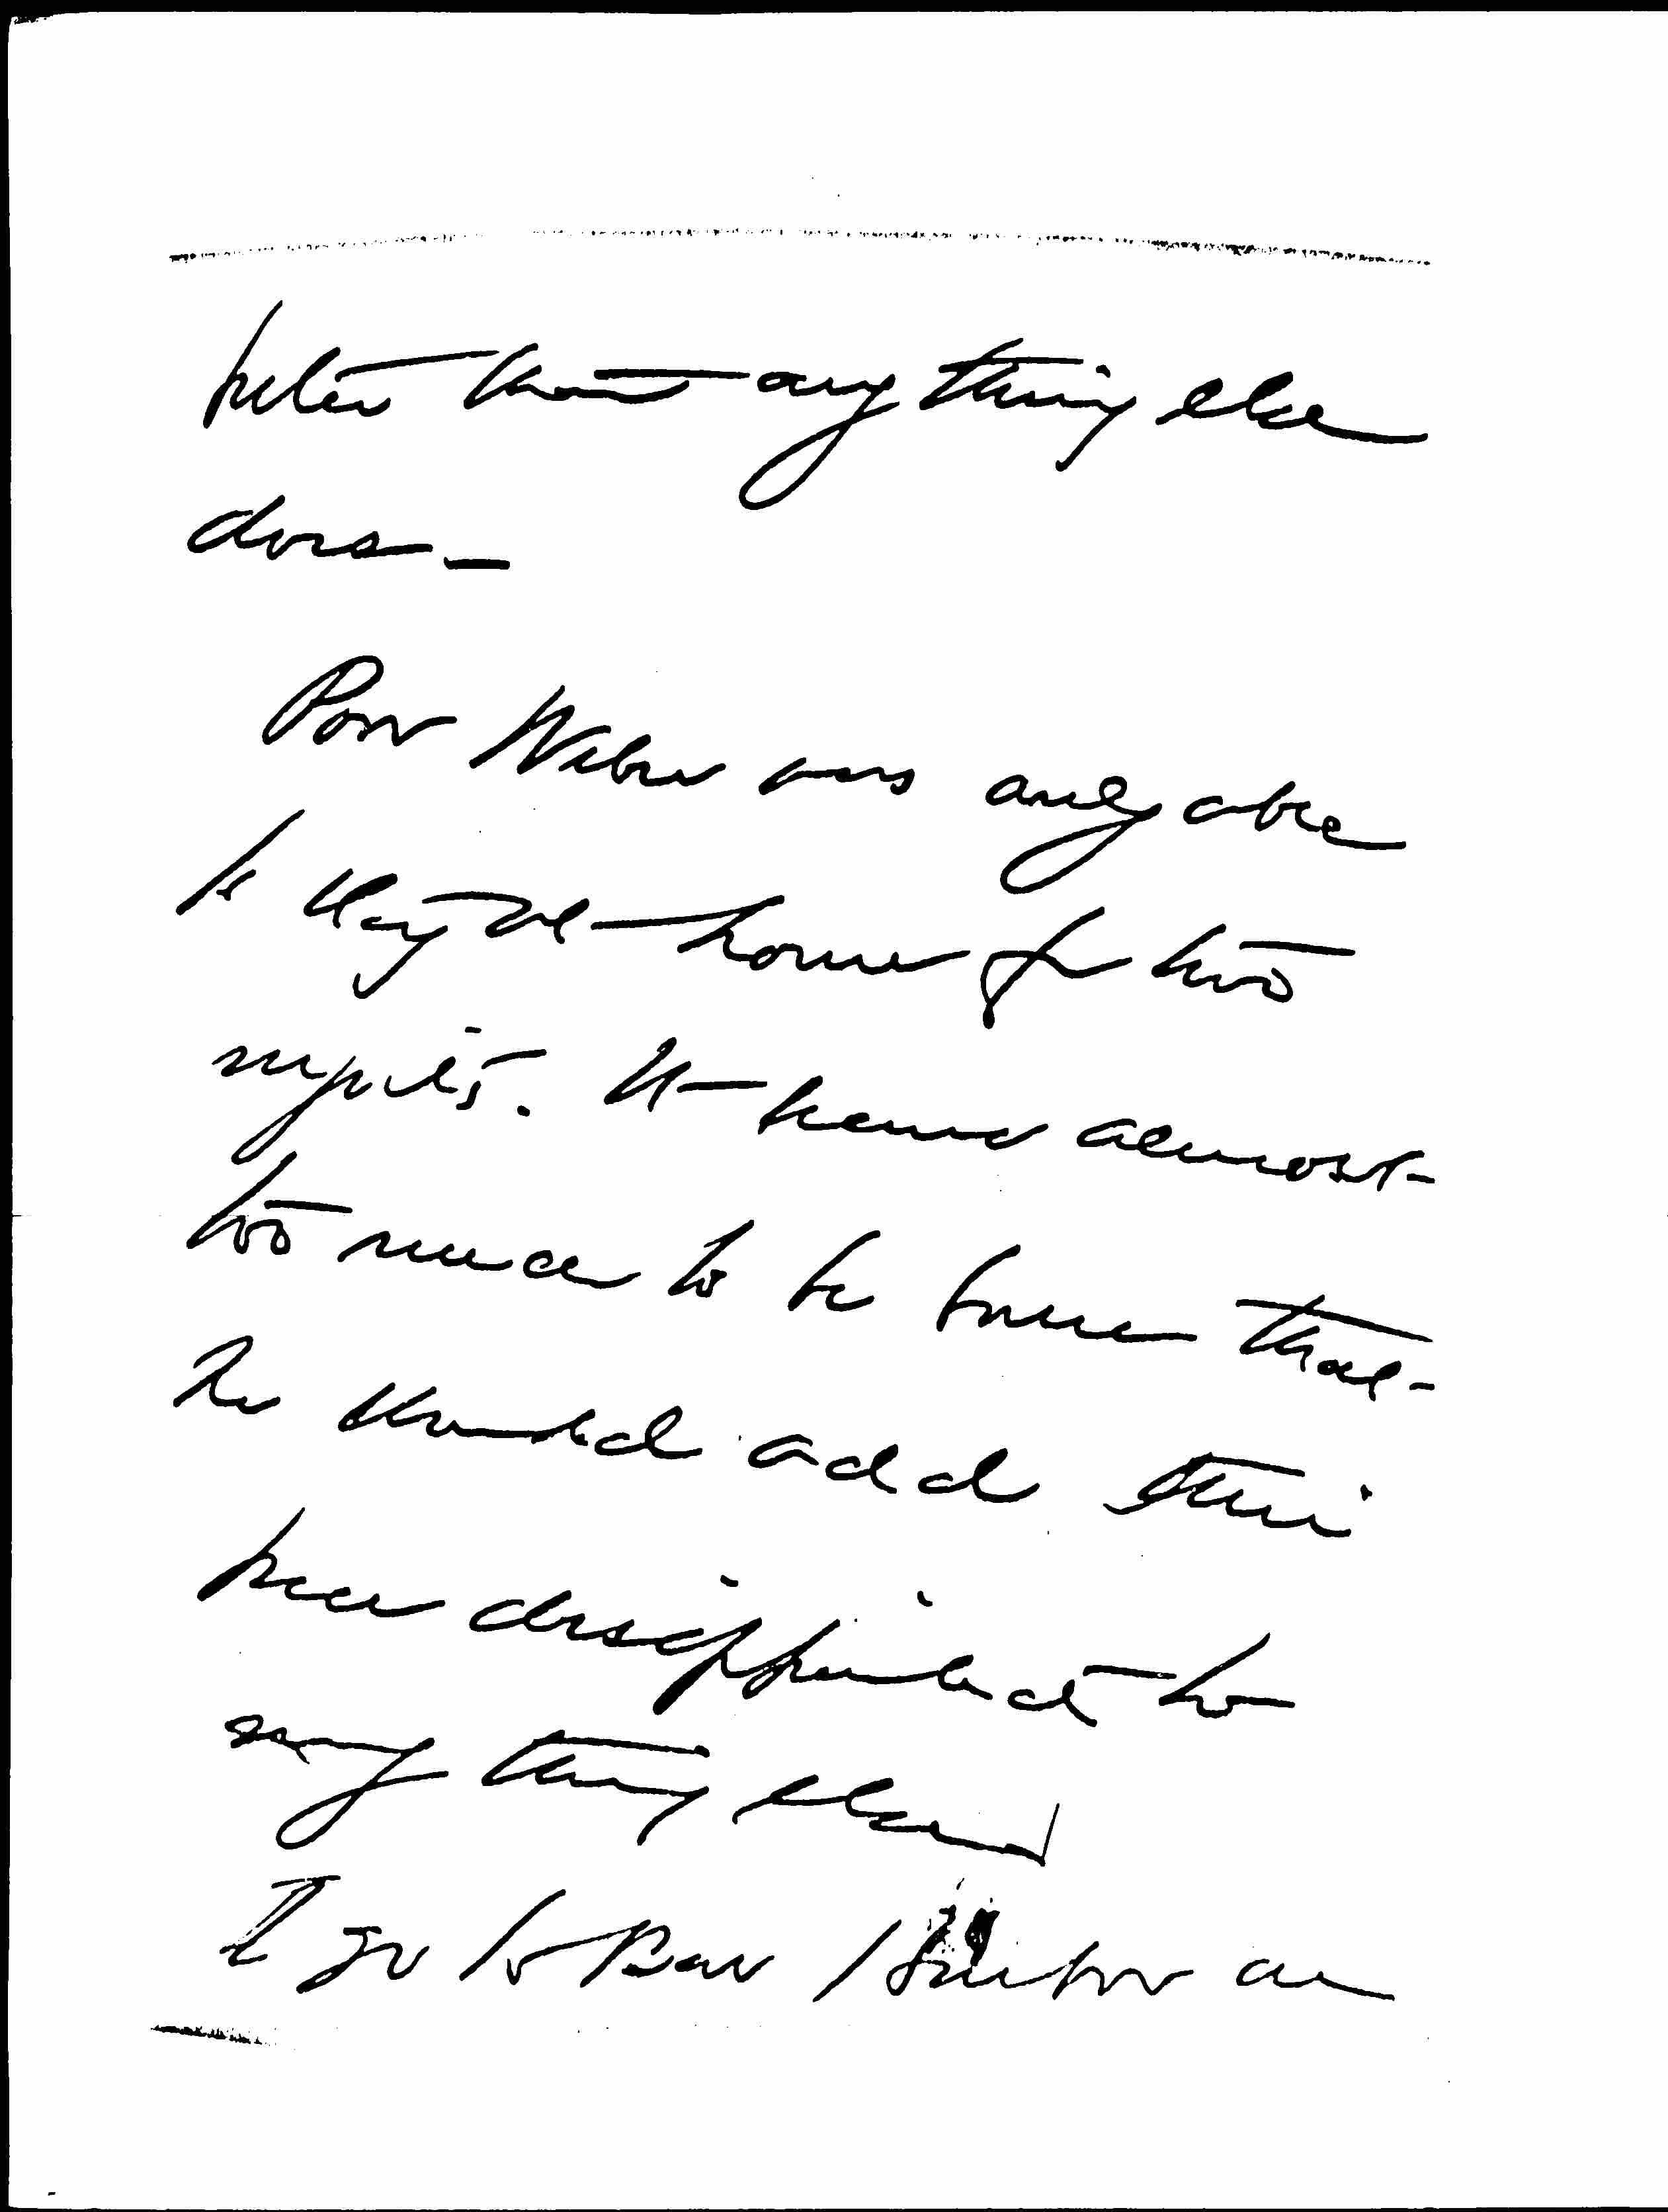 better than anything else
does –
Poor Weber was only able
to stay at home for two
nights. It seems almost
too much to be borne that
he should add this
keen disappointment to
everything else
I go to Bar Harbor on